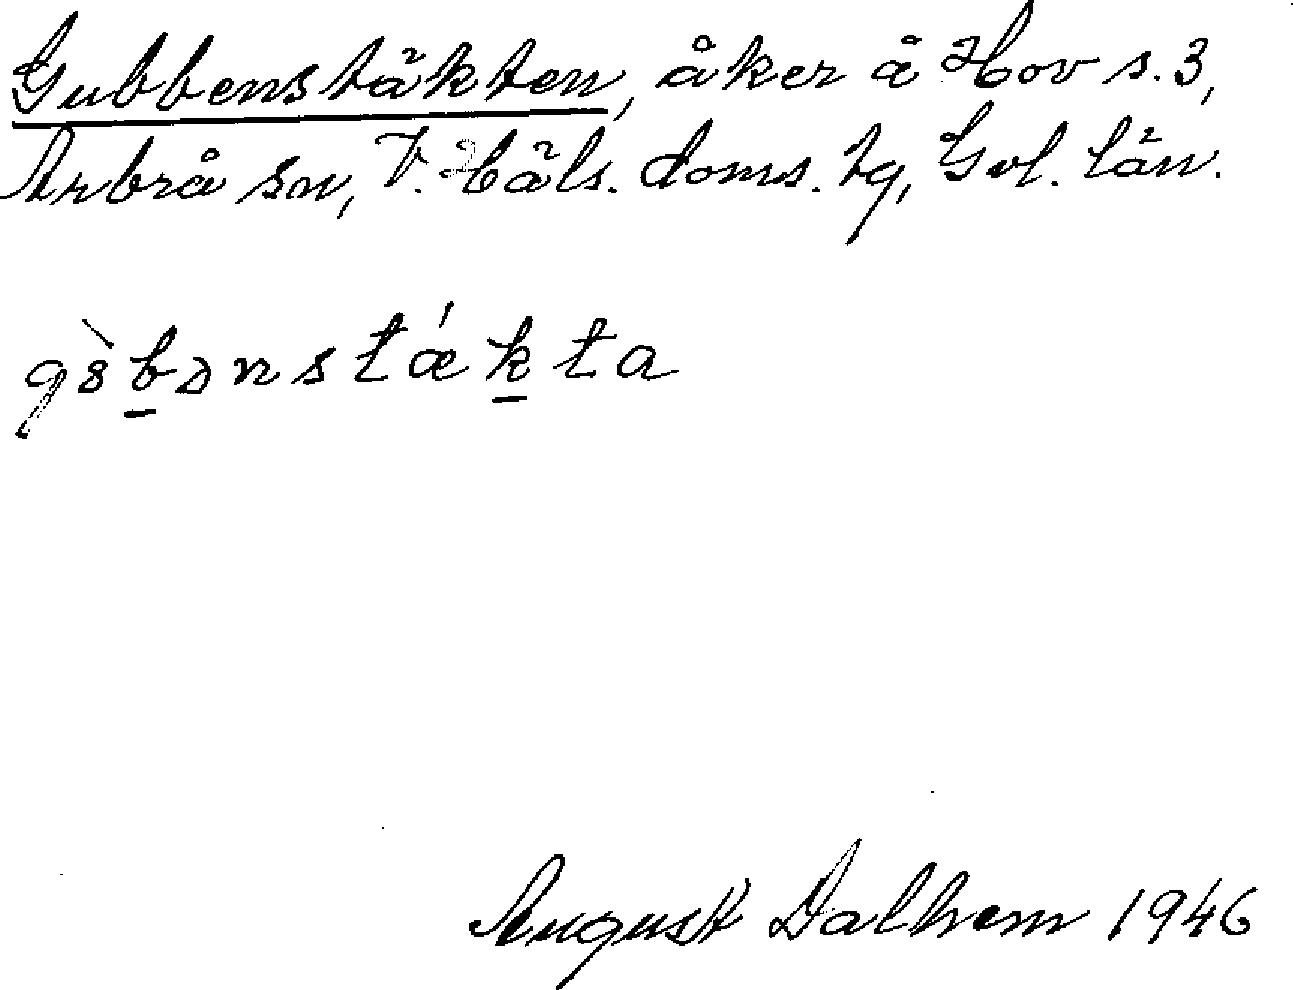 Gubbenstäkten, åker å Hov s. 3,
Arbrå sn, V. Häls. doms. tg, Gvl. län.
gȣ̀b̠ənstǽk̠ta
August Dalhem 1946